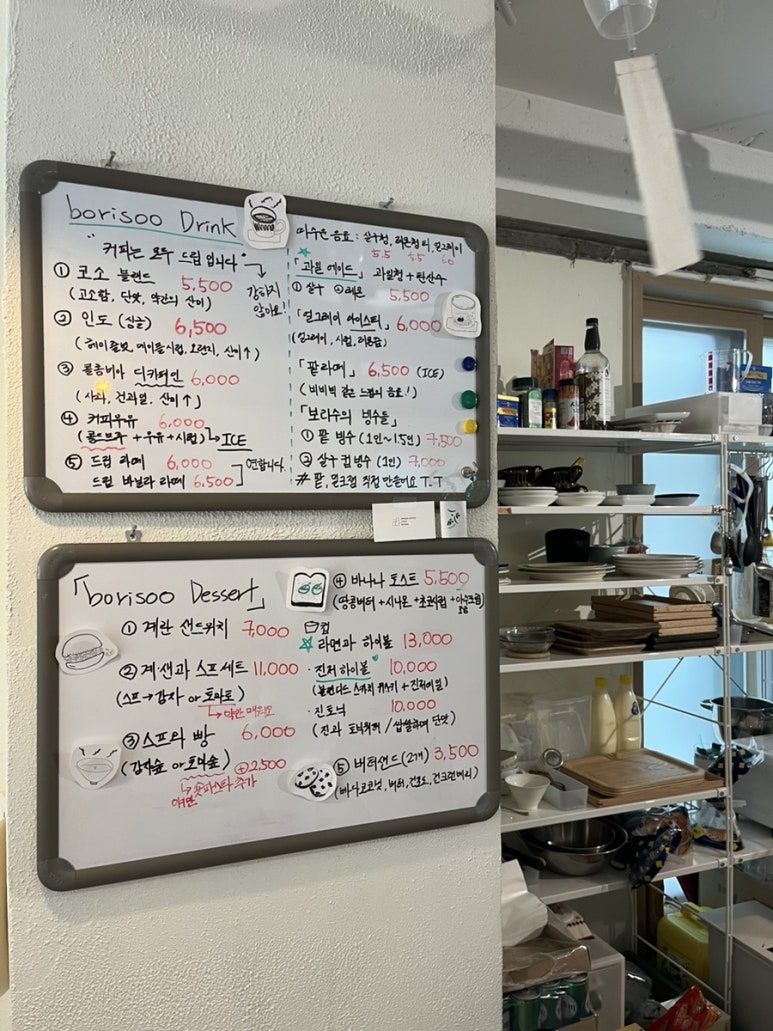 borisoo Drink
"커피는 모두 드립 입니다"
강하지
않아요!
① 코소 블렌드 5,500
(고소함, 단맛, 약간의 산미)
② 인도 (싱글) 6,500
(헤이즐넛, 메이플시럽, 오렌지, 산미↑)
③ 콜롬비아 디카페인 6,000
(사과, 건과일, 산미↑)
④ 커피우유 6,000
(콜드브루 + 우유 + 시럽) → ICE
⑤ 드립 라떼 6,000
드립 바닐라 라떼 6,500
연합니다.
따수운 음료: 살구청, 레몬청 티, 얼그레이
5.5 5.5 6.0
「과일 에이드」 과일청 + 탄산수
① 살구 ② 레몬 5,500
「얼그레이 아이스티」 6,000
(얼그레이, 시럽, 레몬즙)
「팥라떼」 6,500 (ICE)
(비비빅 같은 느낌의 음료!)
「보리수의 빙수들」
① 팥 빙수 (1인~1.5인) 7,500
② 살구 컵빙수 (1인) 7,000
# 팥, 밀크럼 직접 만들어요 T.T
「borisoo Dessert」
① 계란 샌드위치 7,000
② 계.샌과 스프세트 11,000
(스프→감자 or 토마토)
↳ 약간 매워요
③ 스프와 빵 6,000
(감자숲 or 토마숲) ⊕2,500
↳ 숏파스타 추가
④ 바나나 토스트 5,500
(땅콩버터 + 시나몬 + 초코시럽 + 아이스크림)
컵
라면과 하이볼 13,000
· 진저 하이볼 10,000
(블렌디드 스카치 위스키 + 진저에일)
· 진토닉 10,000
(진과 토닉워터 / 쌉쌀하며 단맛)
⑤ 버터샌드 (2개) 3,500